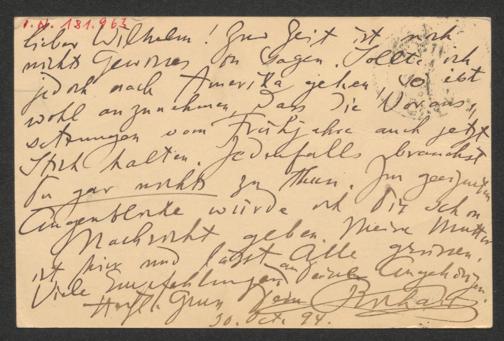 I.N. 181.963
Lieber Wilhelm! Zur Zeit ist noch
nichts Gewisses zu sagen. Sollte ich
jedoch nach Amerika gehen, so ist
wohl anzunehmen, dass die Voraus„
setzungen vom Frühjahre auch jetzt
Stich halten. Jedenfalls brauchst
Du gar nichts zu thun. Im geeigneten
Augenblicke würde ich Dir schon
Nachricht geben. Meine Mutter
ist hier und lässt Alle grüssen.
Viele Empfehlungen an Deine Angehörigen.
Herzl. Gruss Dein
30. Oct. 94.